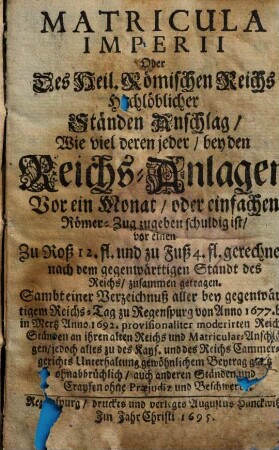 MATRICULA
IMPERII
Oder
Des Heil. Römischen Reichs
Hochlöblicher
Ständen Anschlag /
Wie viel deren jeder / bey den
Reichs-Anlagen
Vor ein Monat / oder einfachen
Römer-Zug zugeben schuldig ist /
vor einen
Zu Roß 12. fl. und zu Fuß 4. fl. gerechnet
nach dem gegenwärttigen Standt des
Reichs / zusammen getragen.
Sambt einer Verzeichnuß aller bey gegenwär-
tigem Reichs-Tag zu Regenspurg von Anno 1677. b
in Mertz Anno. 1692. provisionaliter moderirten Reich
Ständen an ihren alten Reichs und Matricular-Anschlä
gen / jedoch alles zu des Kays. und des Reichs Cammer-
gerichts Unterhaltung gewöhnlichen Beytrag
ohnabbrüchlich / auch anderen Ständen und
Craysen ohne Præjudiz und Beschwer
Regenspurg / druckts und verlegts Augustus Hanckwitz
Im Jahr Christi 1695.